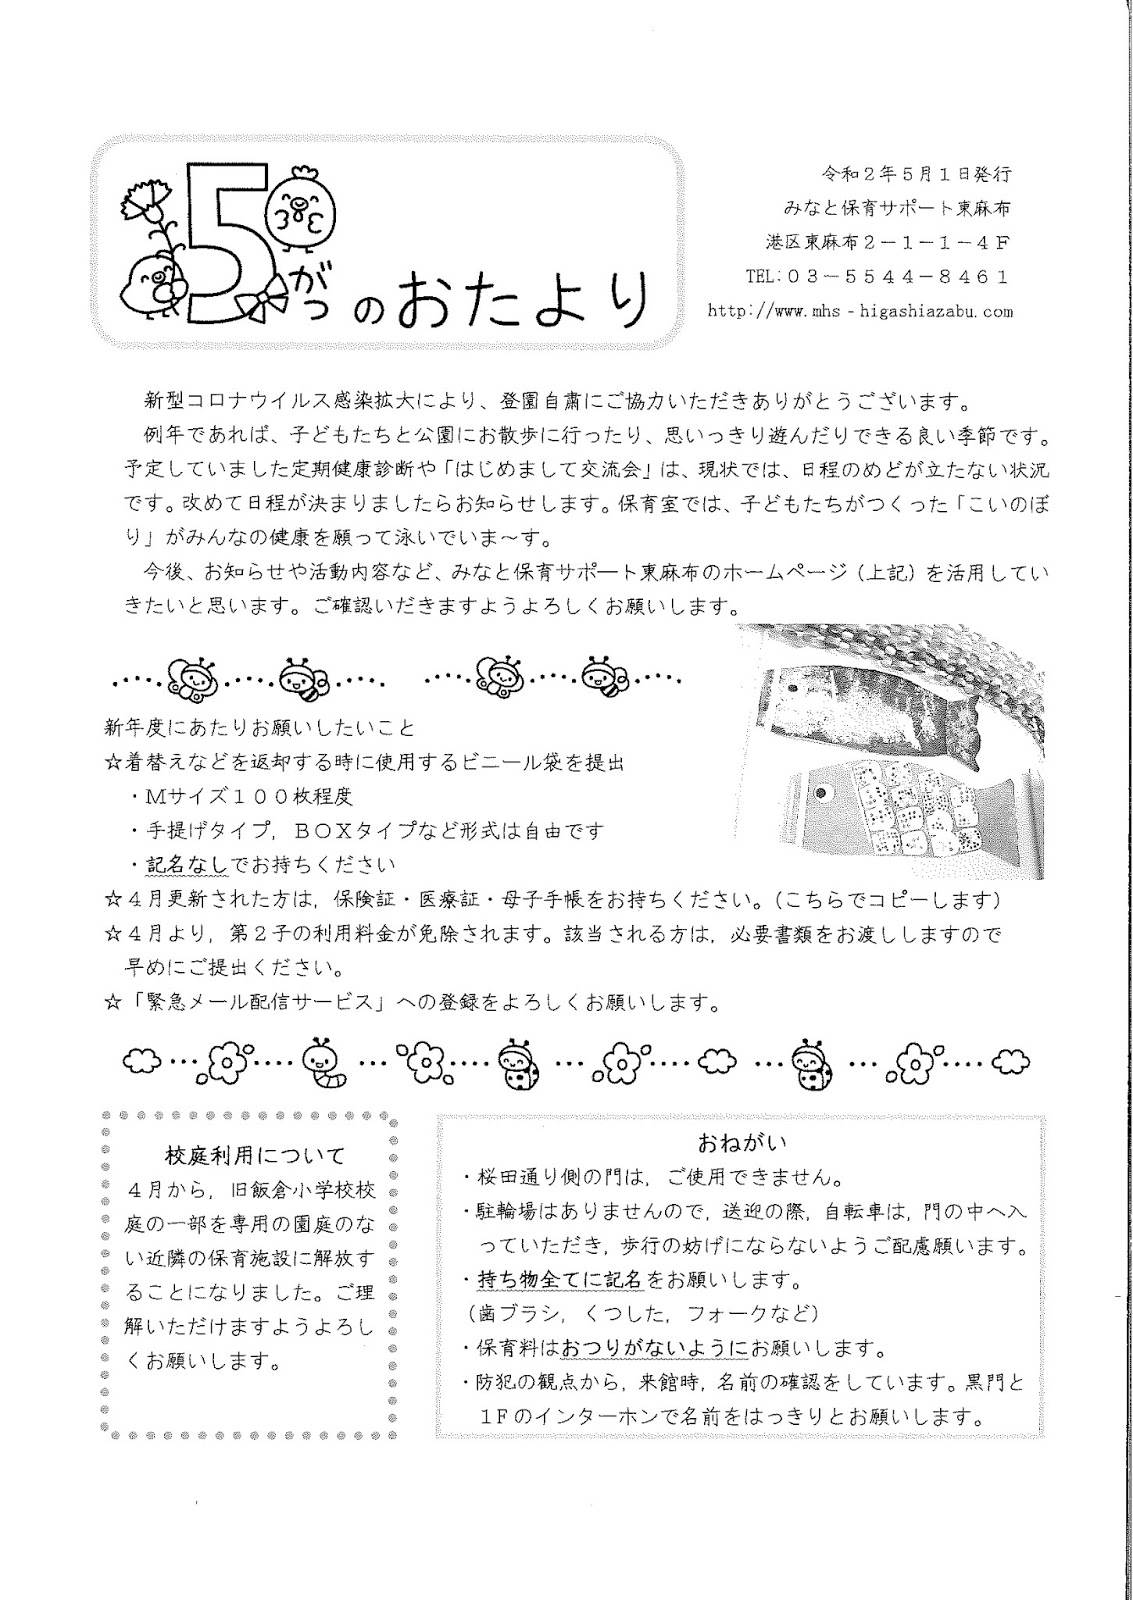 5がつのおたより
令和２年５月１日発行
みなと保育サポート東麻布
港区東麻布２－１－１－４Ｆ
TEL:０３－５５４４－８４６１
http://www.mhs-higashiazabu.com
新型コロナウイルス感染拡大により、登園自粛にご協力いただきありがとうございます。
例年であれば、子どもたちと公園にお散歩に行ったり、思いっきり遊んだりできる良い季節です。
予定していました定期健康診断や「はじめまして交流会」は、現状では、日程のめどが立たない状況
です。改めて日程が決まりましたらお知らせします。保育室では、子どもたちがつくった「こいのぼ
り」がみんなの健康を願って泳いでいま～す。
今後、お知らせや活動内容など、みなと保育サポート東麻布のホームページ（上記）を活用してい
きたいと思います。ご確認いだきますようよろしくお願いします。
新年度にあたりお願いしたいこと
☆着替えなどを返却する時に使用するビニール袋を提出
・Ｍサイズ１００枚程度
・手提げタイプ，ＢＯＸタイプなど形式は自由です
・記名なしでお持ちください
☆４月更新された方は，保険証・医療証・母子手帳をお持ちください。（こちらでコピーします）
☆４月より，第２子の利用料金が免除されます。該当される方は，必要書類をお渡ししますので
早めにご提出ください。
☆「緊急メール配信サービス」への登録をよろしくお願いします。
校庭利用について
４月から，旧飯倉小学校校
庭の一部を専用の園庭のな
い近隣の保育施設に解放す
ることになりました。ご理
解いただけますようよろし
くお願いします。
おねがい
・桜田通り側の門は，ご使用できません。
・駐輪場はありませんので，送迎の際，自転車は，門の中へ入
っていただき，歩行の妨げにならないようご配慮願います。
・持ち物全てに記名をお願いします。
（歯ブラシ，くつした，フォークなど）
・保育料はおつりがないようにお願いします。
・防犯の観点から，来館時，名前の確認をしています。黒門と
１Ｆのインターホンで名前をはっきりとお願いします。